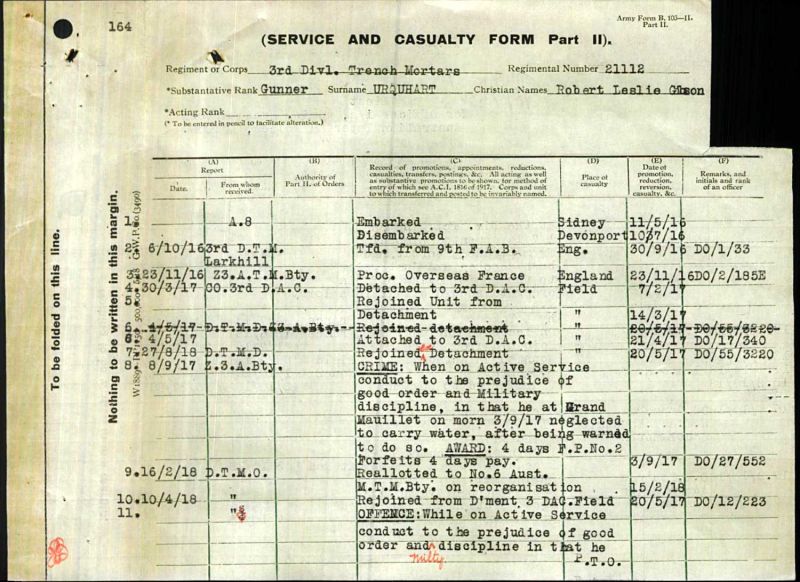 164
Army Form B. 103—II.
Part II.
(SERVICE AND CASUALTY FORM Part II).
Regiment or Corps 3rd Divl. Trench Mortars Regimental Number 21112
*Substantative Rank Gunner Surname URQUHART Christian Names Robert Leslie Gibson
*Acting Rank
(* To be entered in pencil to facilitate alteration.)
To be folded on this line.
Nothing to be written in this margin.
(A) Report
Date. From whom received.
(B)
Authority of Part II. of Orders
(C)
Record of promotions, appointments, reductions,
casualties, transfers, postings, &c. All acting as well
as substantive promotions to be shown, for method of
entry of which see A.C.I. 1816 of 1917. Corps and unit
to which transferred and posted to be invariably named.
(D)
Place of casualty
(E)
Date of promotion, reduction, reversion, casualty, &c.
(F)
Remarks, and initials and rank of an officer
1. A.8 Embarked Sidney 11/5/16
Disembarked Devonport 10/7/16
2. 6/10/16 3rd D.T.M. Tfd. from 9th F.A.B. Eng. 30/9/16 DO/1/33
Larkhill
3. 23/11/16 Z3.A.T.M.Bty. Proc. Overseas France England 23/11/16 DO/2/185E
4. 30/3/17 CO.3rd D.A.C. Detached to 3rd D.A.C. Field 7/2/17
5. Rejoined Unit from
Detachment " 14/3/17
6. 4/5/17 D.T.M.D.Z3.A.Bty. Rejoined detachment " 20/5/17 DO/55/3220
6. 4/5/17 Attached to 3rd D.A.C. " 21/4/17 DO/17/340
7. 27/8/18 D.T.M.D. Rejoined Detachment " 20/5/17 DO/55/3220
8. 8/9/17 Z.3.A.Bty. CRIME: When on Active Service
conduct to the prejudice of
good order and Military
discipline, in that he at Grand
Mauillet on morn 3/9/17 neglected
to carry water, after being warned
to do so. AWARD: 4 days F.P.No.2
Forfeits 4 days pay. 3/9/17 DO/27/552
9. 16/2/18 D.T.M.O. Reallotted to No.6 Aust.
M.T.M.Bty. on reorganisation 15/2/18
10. 10/4/18 " Rejoined from D'ment 3 DAC. Field 20/5/17 DO/12/223
11. " OFFENCE: While on Active Service
conduct to the prejudice of good
order and discipline in that he
milty.
P.T.O.